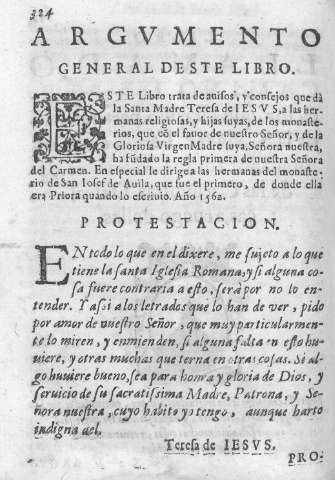 324
ARGVMENTO
GENERAL DESTE LIBRO.
ESTE Libro trata de auisos, y consejos que dà
la Santa Madre Teresa de IESVS, a las her-
manas religiosas, y hijas suyas, de los monaste-
rios, que cõ el fauor de nuestro Señor, y de la
Gloriosa Virgen Madre suya, Señora nuestra,
ha fũdado la regla primera de nuestra Señora
del Carmen. En especial le dirige a las hermanas del monaste-
rio de San Iosef de Auila, que fue el primero, de donde ella
era Priora quando lo escriuio. Año 1562.
PROTESTACION.
EN todo lo que en el dixere, me sujeto a lo que
tiene la santa Iglesia Romana, y si alguna co-
sa fuere contraria a esto, serà por no lo en-
tender. Y assi a los letrados que lo han de ver, pido
por amor de nuestro Señor, que muy particularmente
lo miren, y enmienden, si alguna falta en esto hu-
uiere, y otras muchas que terna en otras cosas. Si al-
go huuiere bueno, sea para honra y gloria de Dios, y
seruicio de su sacratissima Madre, Patrona, y Se-
ñora nuestra, cuyo habito yo tengo, aunque harto
indigna del.
Teresa de IESVS.
PRO-